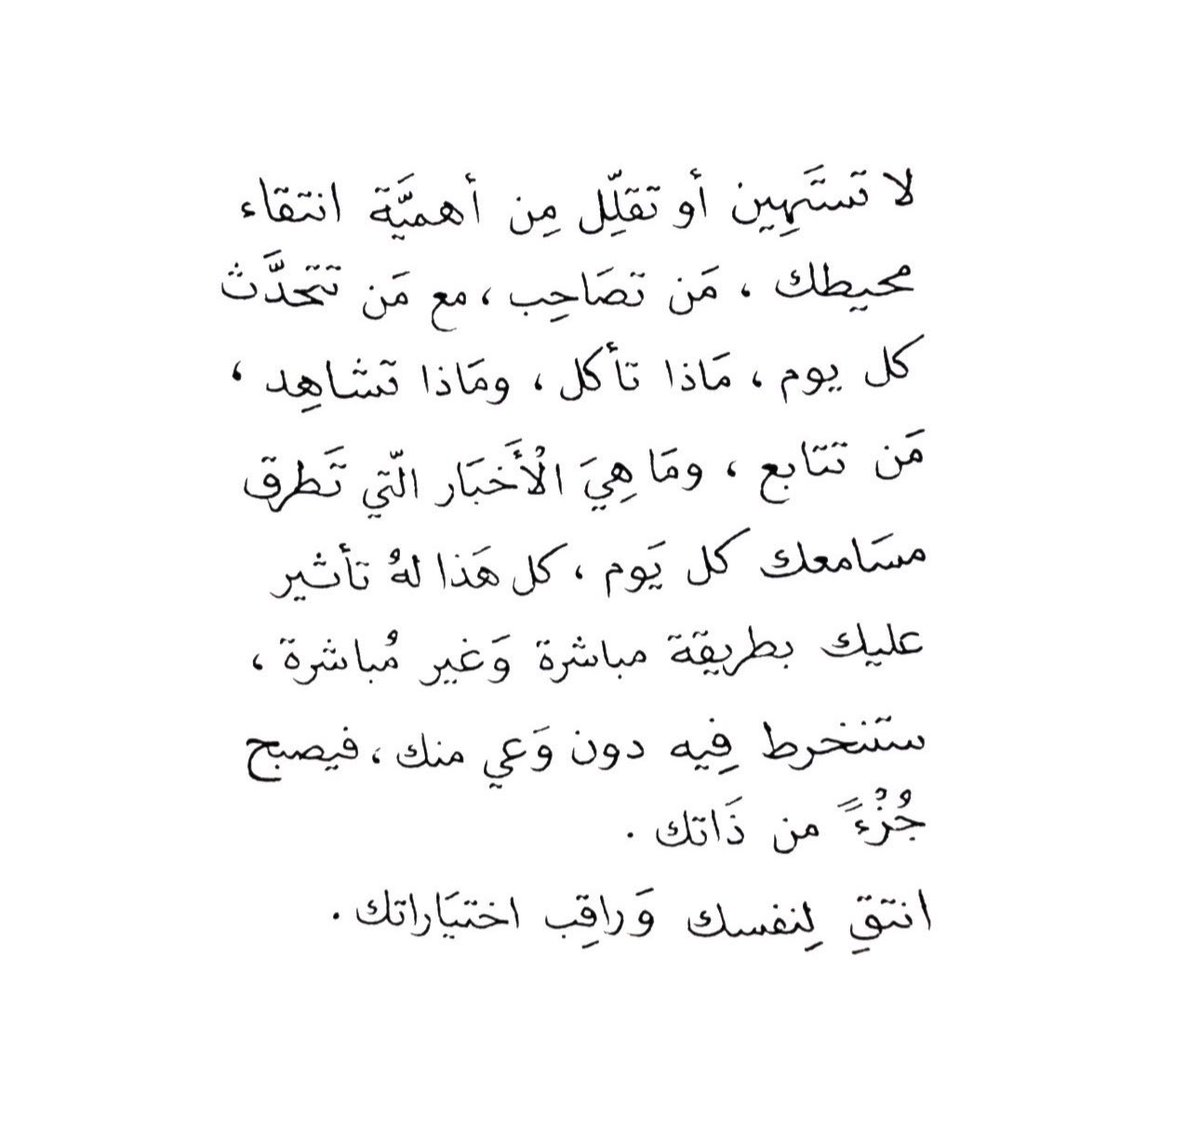 لا تستَهِين أو تقلِّل مِن أهميَّة انتقاء
محيطك ، مَن تصَاحِب ، مع مَن تتحدَّث
كل يوم ، مَاذا تأكل ، ومَاذا تشاهِد ،
مَن تتابع ، ومَا هِيَ الْأَخبَار الّتي تَطرق
مسَامعك كل يَوم ، كل هَذا لهُ تأثير
عليك بطريقة مباشرة وَغير مُباشرة ،
ستنخرط فِيه دون وَعي منك ، فيصبح
جُزُءً من ذَاتك .
انتقِ لِنفسك وَراقِب اختيَاراتك .